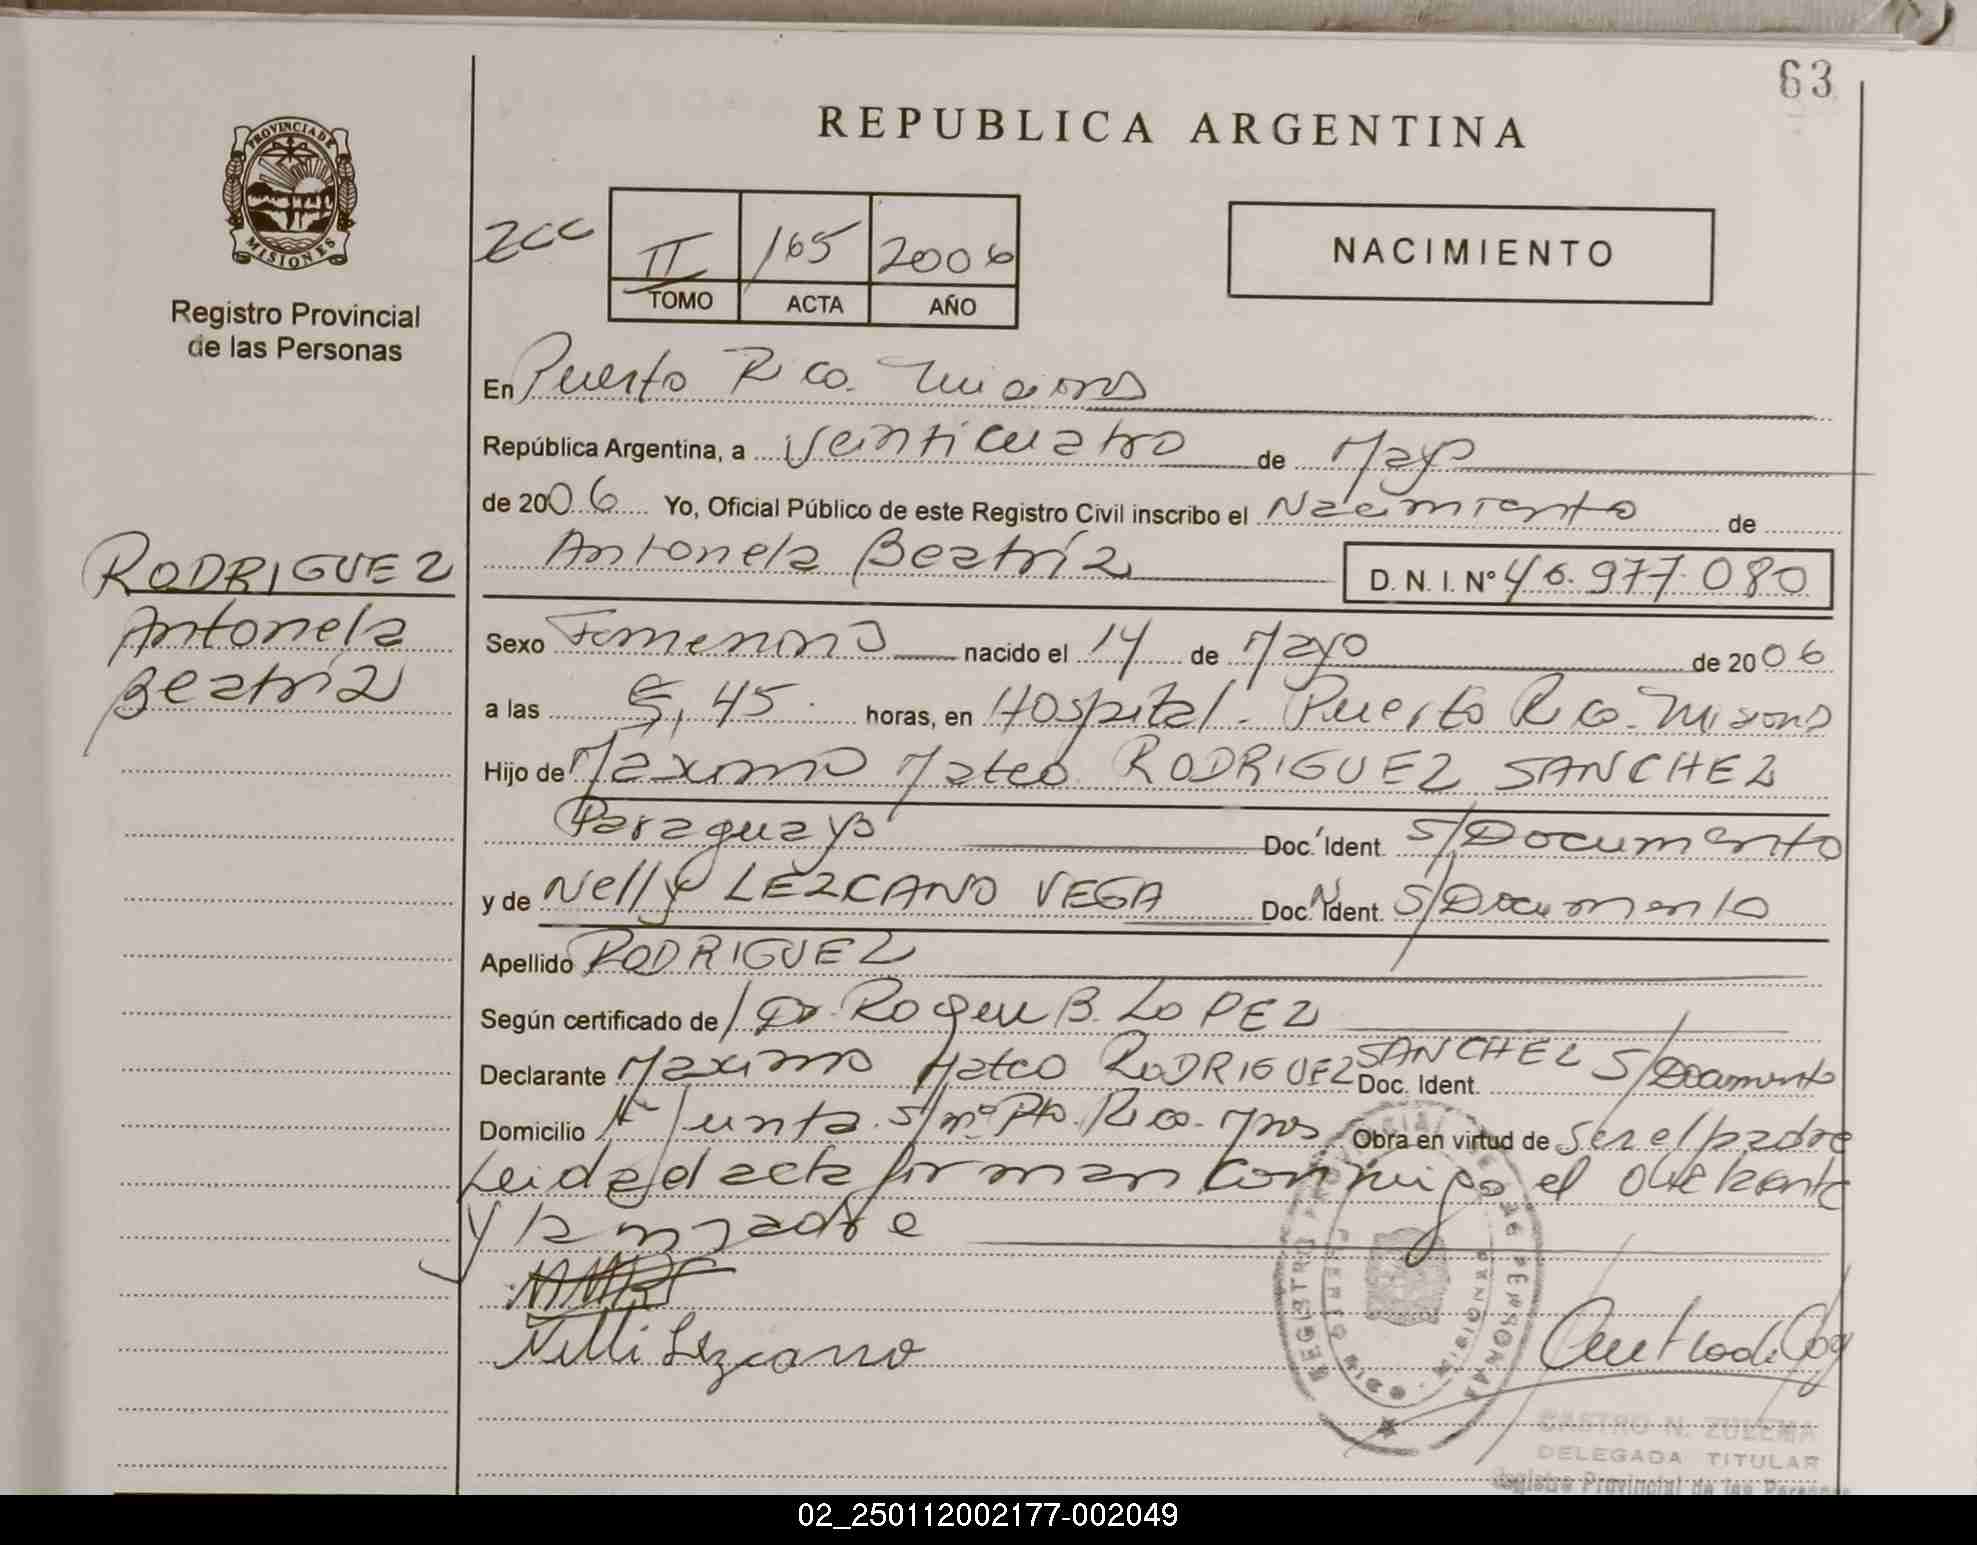 63
PROVINCIA DE
MISIONES
Registro Provincial
de las Personas
REPUBLICA ARGENTINA
II 165 2006
TOMO ACTA AÑO
NACIMIENTO
En Puerto Rico. Misiones
República Argentina, a Veinticuatro de Mayo
de 2006 Yo, Oficial Público de este Registro Civil inscribo el Nacimiento de
Antonela Beatríz D. N. I. N° 46.977.080
RODRIGUEZ
Antonela
Beatríz
Sexo Femenino nacido el 14 de Mayo de 2006
a las 5,45 horas, en Hospital. Puerto Rico. Misiones
Hijo de Máximo Mateo RODRIGUEZ SANCHEZ
Paraguayo Doc. Ident. S/Documento
y de Nelly LEZCANO VEGA Doc. Ident. S/Documento
Apellido RODRIGUEZ
Según certificado de Dr. Roger B. LOPEZ
Declarante Maximo Mateo RODRIGUEZ SANCHEZ Doc. Ident. S/Documento
Domicilio Junta. S/nº Pto. Rico. Mnes Obra en virtud de Ser el padre
Leida el acta firman conmigo el declarante
y la madre
Nelli Lezcano
REGISTRO PROVINCIAL DE LAS PERSONAS
PUERTO RICO MISIONES
CASTRO N. ZULEMA
DELEGADA TITULAR
Registro Provincial de las Personas
02_250112002177-002049